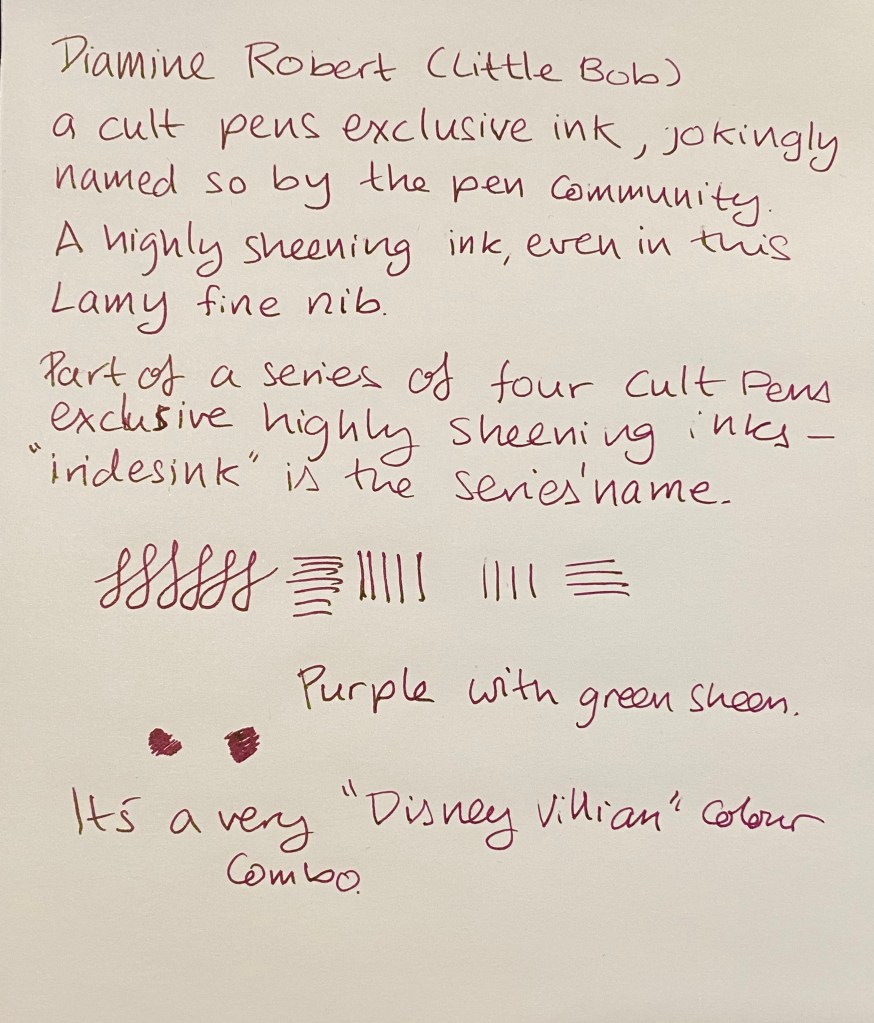 Diamine Robert (Little Bob)
a cult pens exclusive ink, jokingly
named so by the pen community.
A highly sheening ink, even in this
Lamy fine nib.
Part of a series of four Cult Pens
exclusive highly sheening inks –
"iridesink" is the series' name.
Purple with green sheen.
It's a very "Disney Villian" colour
Combo.